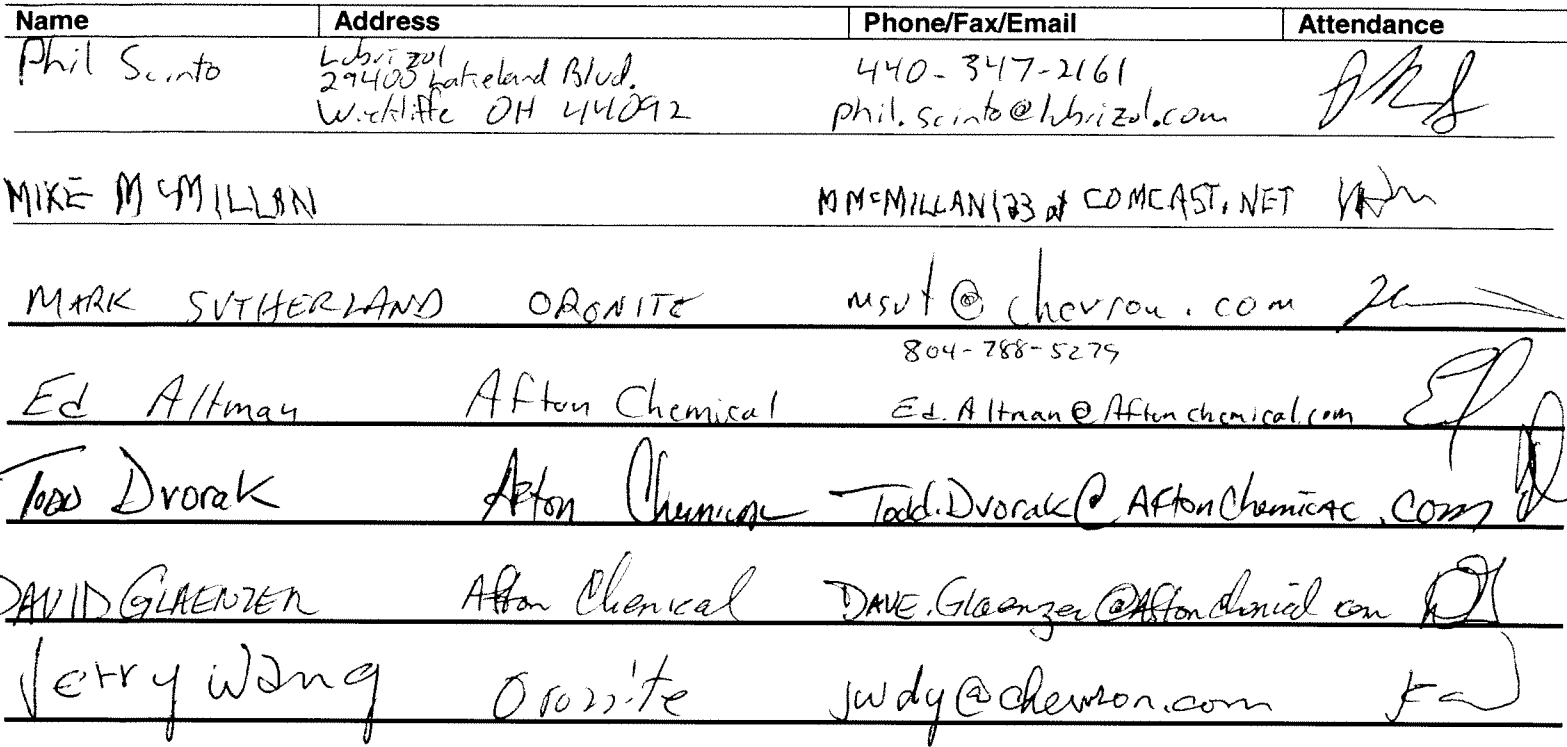 Name Address Phone/Fax/Email Attendance
Phil Scinto Lubrizol 440-347-2161
29400 Lakeland Blvd.
Wickliffe OH 44092 phil.scinto@lubrizol.com
MIKE MCMILLAN MMCMILLAN123 at COMCAST.NET
MARK SUTHERLAND ORONITE msut@chevron.com
804-788-5279
Ed Altman Afton Chemical Ed.Altman@Aftonchemical.com
Todd Dvorak Afton Chemical Todd.Dvorak@AftonChemical.com
DAVID GLAENZER Afton Chemical DAVE.Glaenzer@Aftonchemical.com
Jerry Wang Oronite jwdy@chevron.com